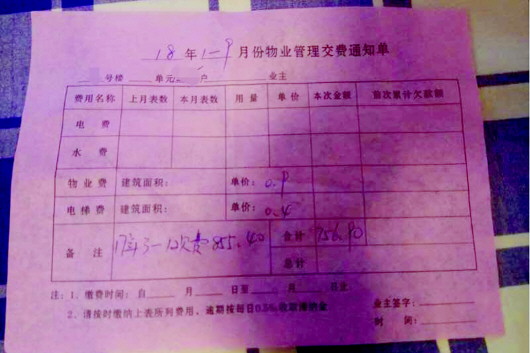 18 年 1-9 月份物业管理交费通知单
号楼 单元 户 业主
费用名称 上月表数 本月表数 用量 单价 本次金额 前次累计欠款额
电 费
水 费
物业费 建筑面积: 单价: 0.9
电梯费 建筑面积: 单价: 0.4
备 注 17年3-12欠费855.40 合计 756.80
总计
注:1、缴费时间:自 月 日至 月 日止
2、请按时缴纳上表所列费用,逾期按每日0.3%收取滞纳金
业主签字:
时 间: